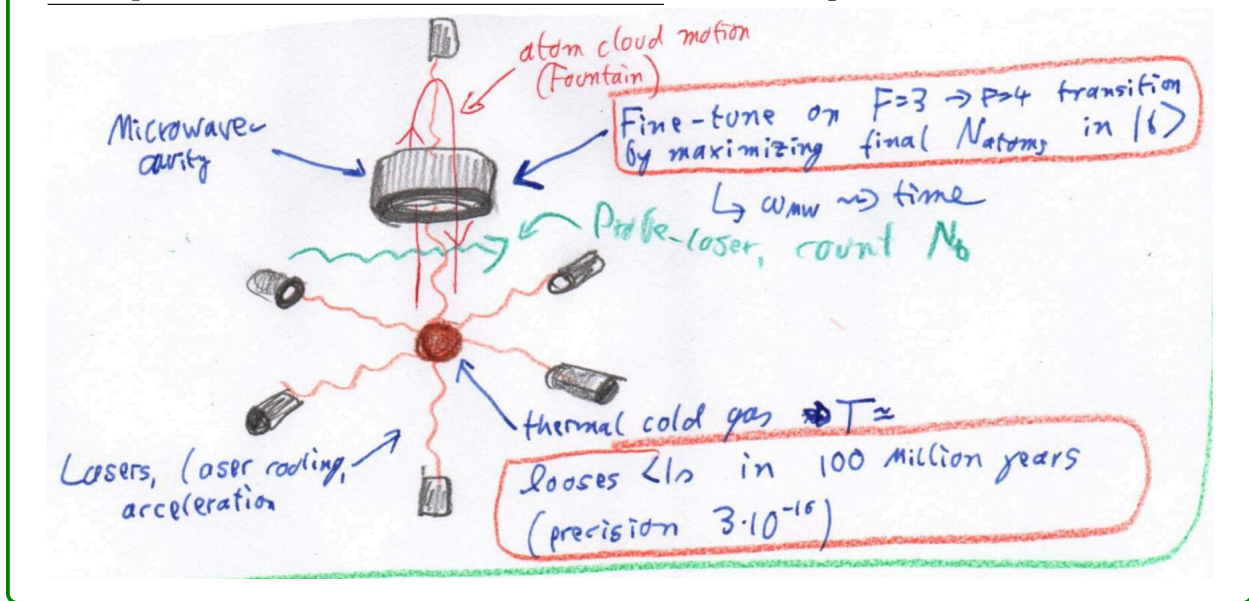 atom cloud motion
(Fountain)
Microwave
cavity
Fine-tune on F=3 → F=4 transition
by maximizing final Natoms in |b>
↳ ωMW ⇝ time
Probe-laser, count Nb
thermal cold gas T≈
Lasers, laser cooling,
acceleration
looses <1s in 100 Million years
(precision 3·10⁻¹⁶)